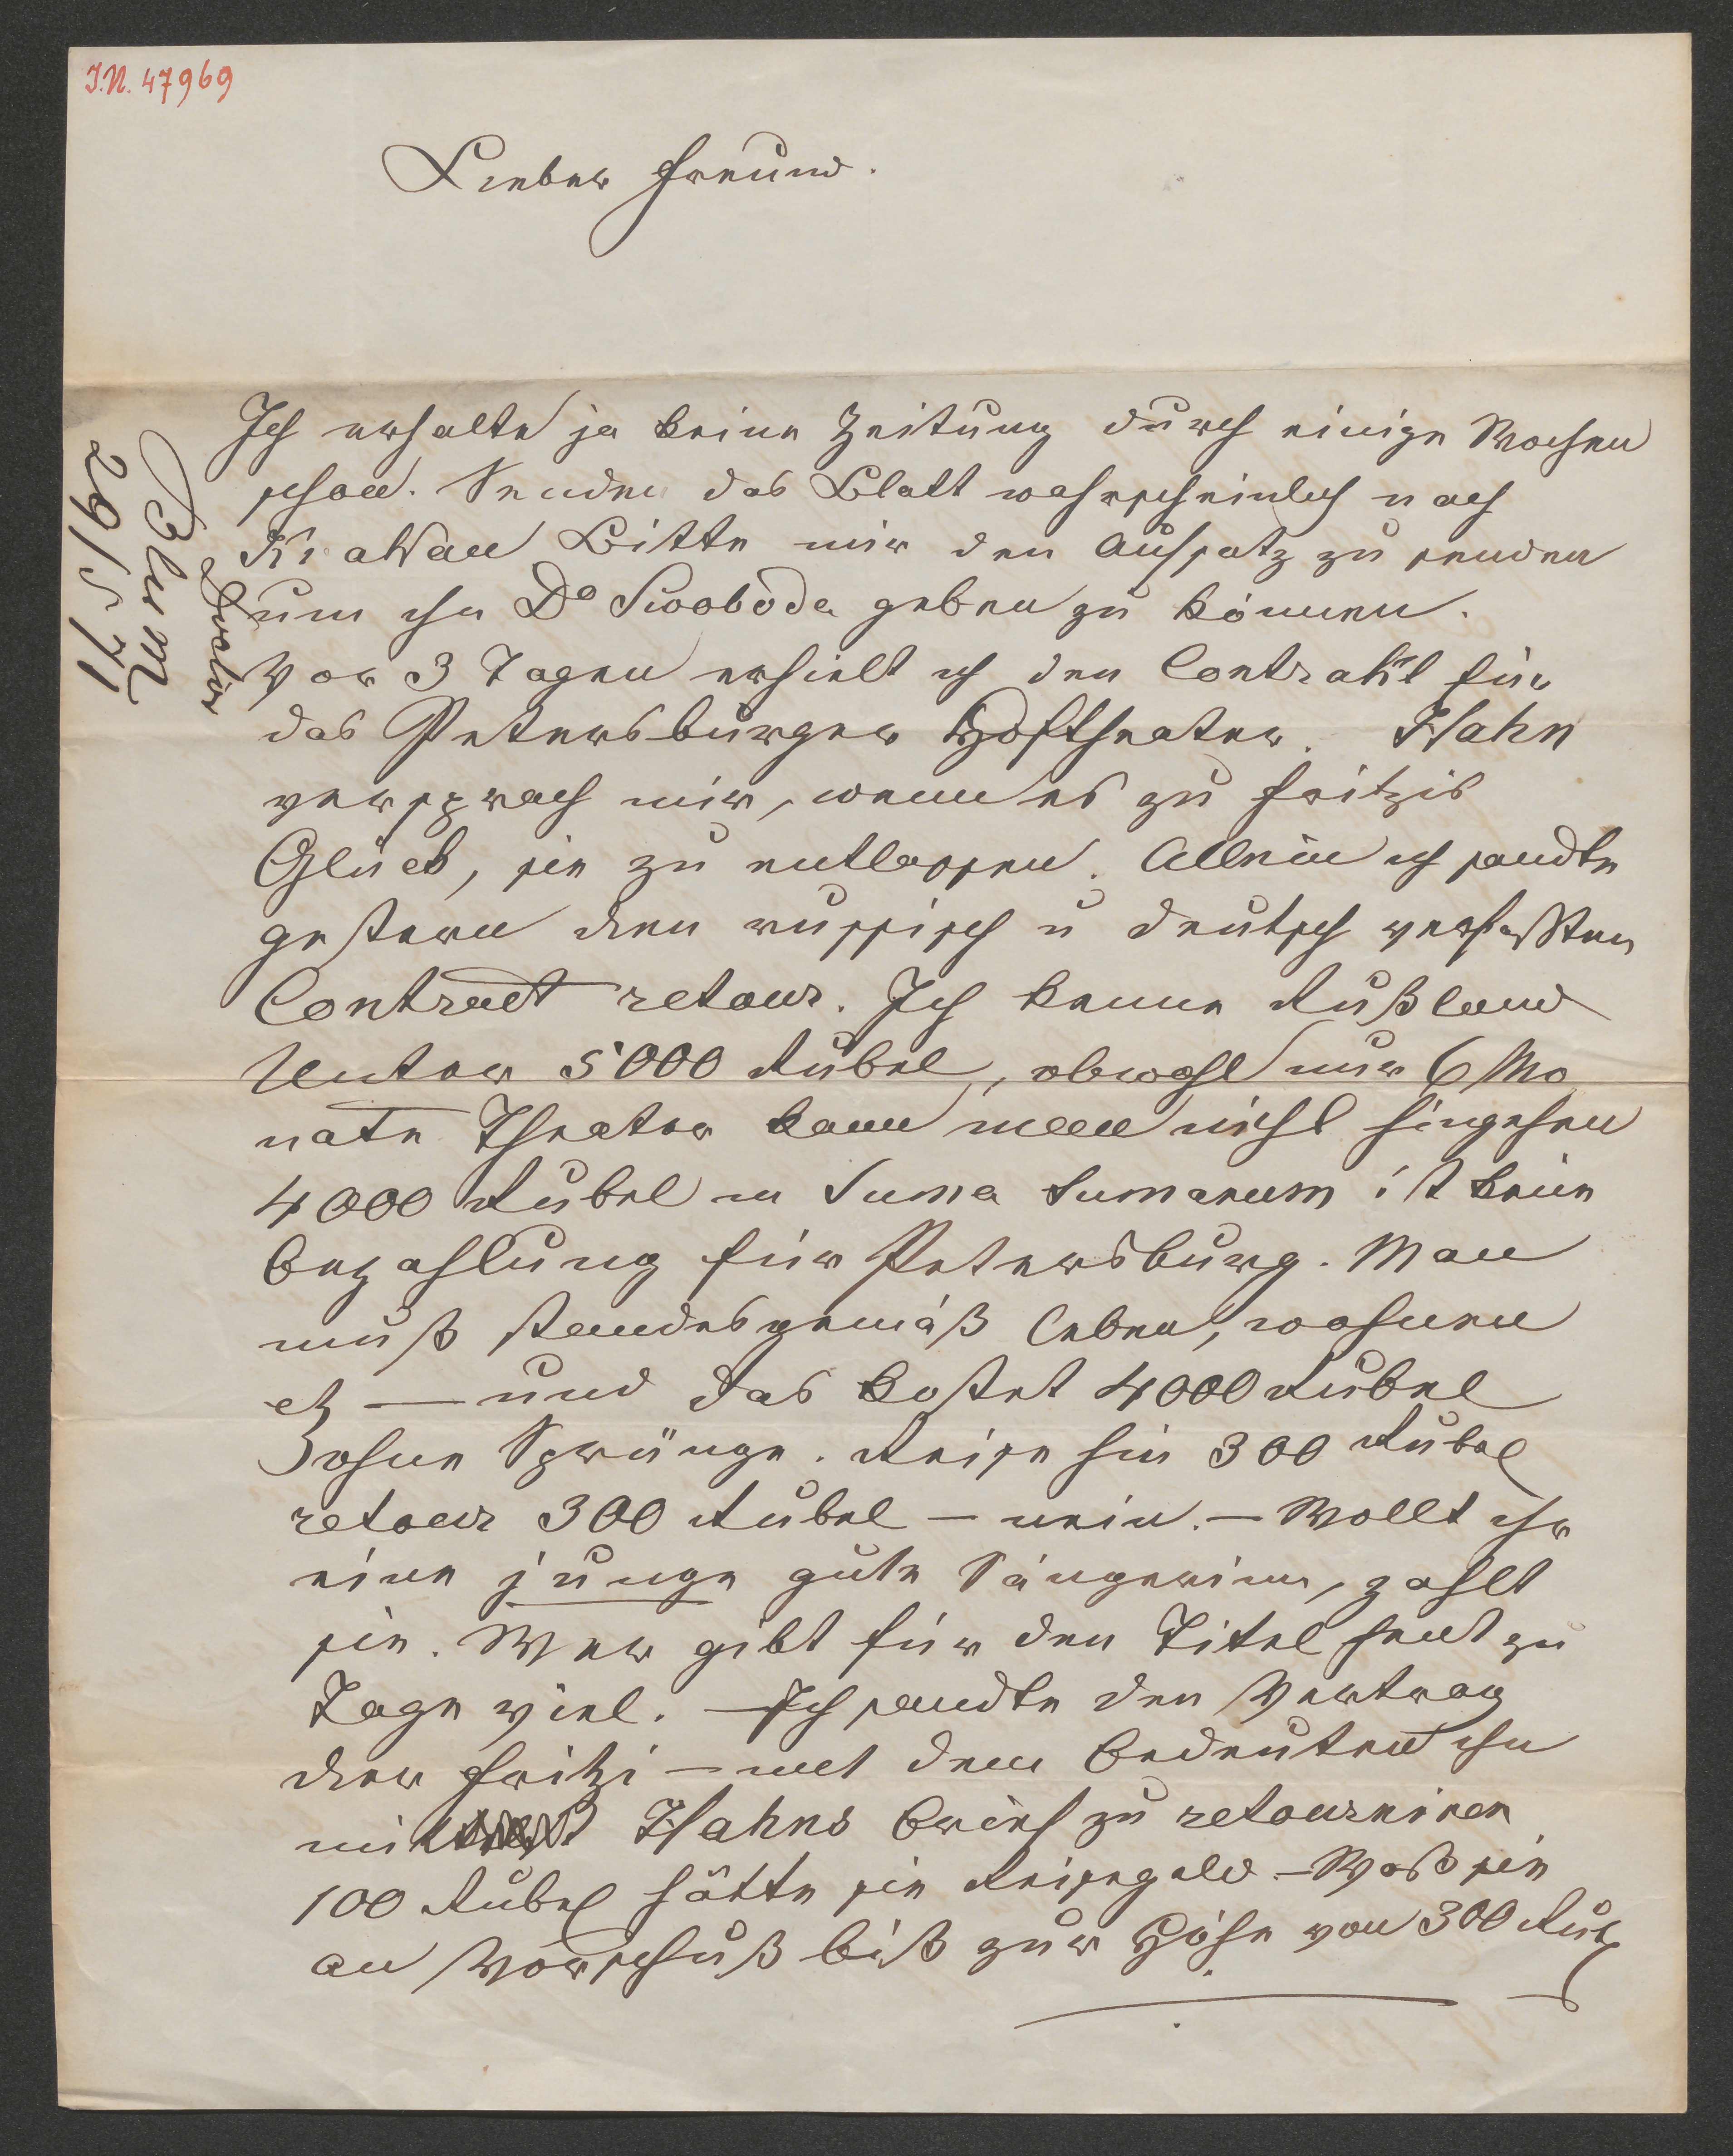 I.N. 47969
Lieber Freund.
Ich erhalte ja keine Zeitung durch einige Wochen
schon. Senden das Blatt wahrscheinlich nach
Bitte mir den Aufsatz zu senden
um ihn Dr Swoboda geben zu können.
Vor 3 Tagen erhielt ich den Contrakt für
das Petersburger Hoftheater. Hahn
versprach mir, wenn es zu Fritzis
Glück, sie zu entlassen. Allein ich sandte
gestern den russisch u deutsch verfaßten
Contract retour. Ich kenne Rußland
Unter 5000 Rubel, obwohl nur 6 Mo
nate Theater kann man nicht hingehen
4000 Rubel in Suma Sumarum ist keine
Bezahlung für Petersburg. Man
muß standesgemäß leben, wohnen
etz — und das kostet 4000 Rubel
ohne Sprünge. Reise hin 300 Rubel
retour 300 Rubel — nein. — Wollt ihr
eine junge gute Sängerinn, zahlt
sie. Wer gibt für den Titel heut zu
Tage viel. — Ich sandte den Vertrag
der Fritzi — mit dem Bedeuten ihn
mit Hahns Brief zu retourniren
100 Rubel hätte sie Reisegeld — Was sie
an Vorschuß biß zur Höhe von 300 Rub
Blum
Doctor
29/5 71